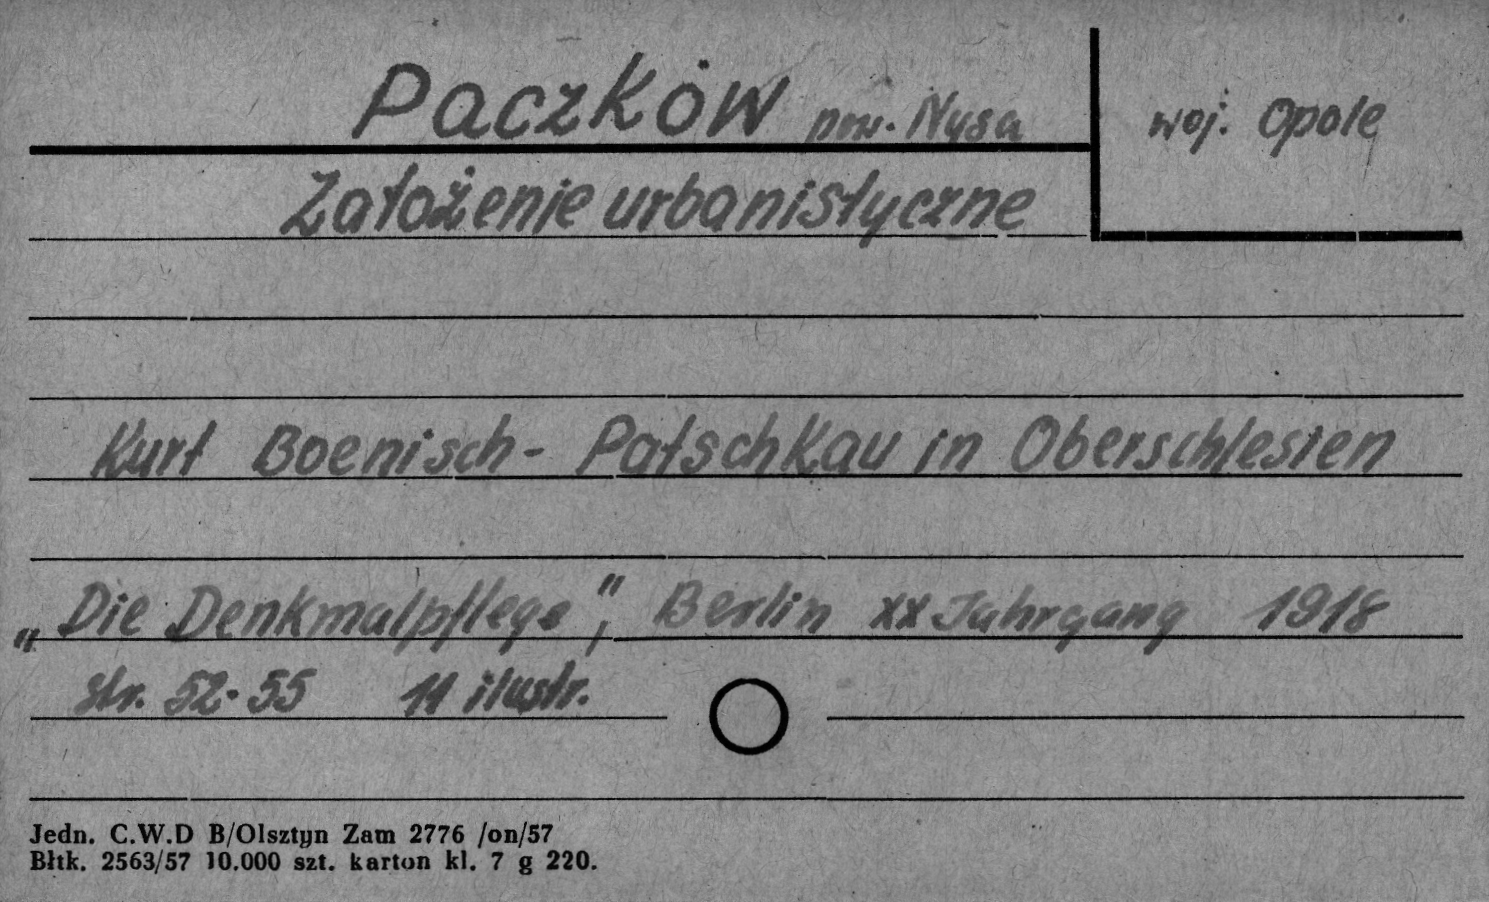 Paczków pow. Nysa
woj. Opole
Założenie urbanistyczne
Kurt Boenisch - Patschkau in Oberschlesien
„Die Denkmalpflege”, Berlin XX Jahrgang 1918
str. 52-55 11 ilustr.
Jedn. C.W.D B/Olsztyn Zam 2776 /on/57
Błtk. 2563/57 10.000 szt. karton kl. 7 g 220.